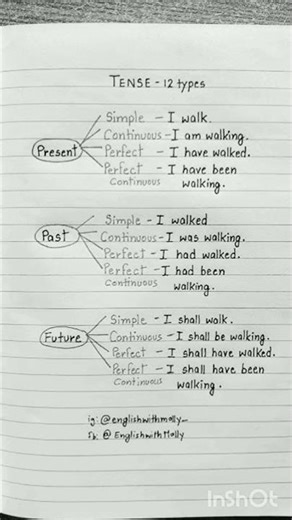 TENSE - 12 types
Present
Simple - I walk.
Continuous - I am walking.
Perfect - I have walked.
Perfect - I have been
Continuous walking.
Past
Simple - I walked
Continuous - I was walking.
Perfect - I had walked.
Perfect - I had been
Continuous walking.
Future
Simple - I shall walk.
Continuous - I shall be walking.
Perfect - I shall have walked.
Perfect - I shall have been
Continuous walking.
ig: @englishwithmolly_
@ EnglishwithMolly
InShOt